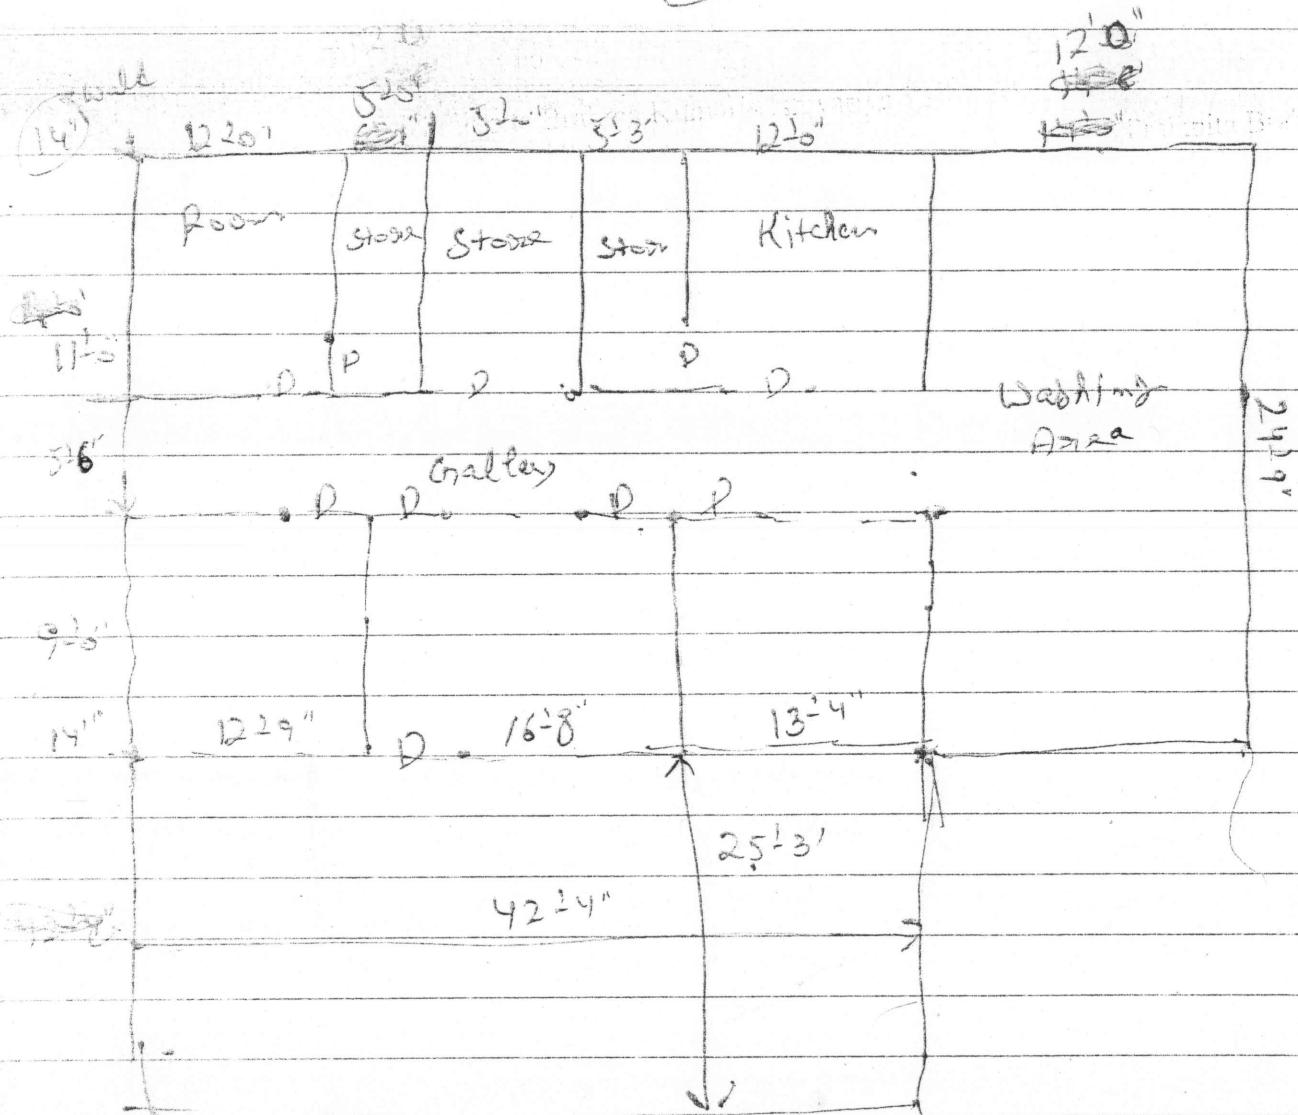 12'-0"
14" wall 12'-0" 5'-0" 5'-3 12'-0"
Room Store Store Stor Kitchen
11'-0"
D D D D D
Washing
Area
24'-9"
5'-6"
Gallery
D D D D
9'-0"
14" 12'-9" D 16'-8" 13'-4"
25'-3'
42'-4"